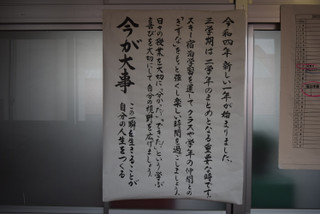 令和四年 新しい一年が始まりました。
三学期は二学年のまとめとなる重要な時です。
スキー宿泊学習を通してクラスや学年の仲間との
"きずな"をもっと強くし楽しい時間を過ごしましょう。
日々の授業を大切に「分かった」「できた」という学ぶ
喜びを大切にして自分の視野を広げましょう。
今が大事
この一瞬を生きることが
自分の人生をつくる